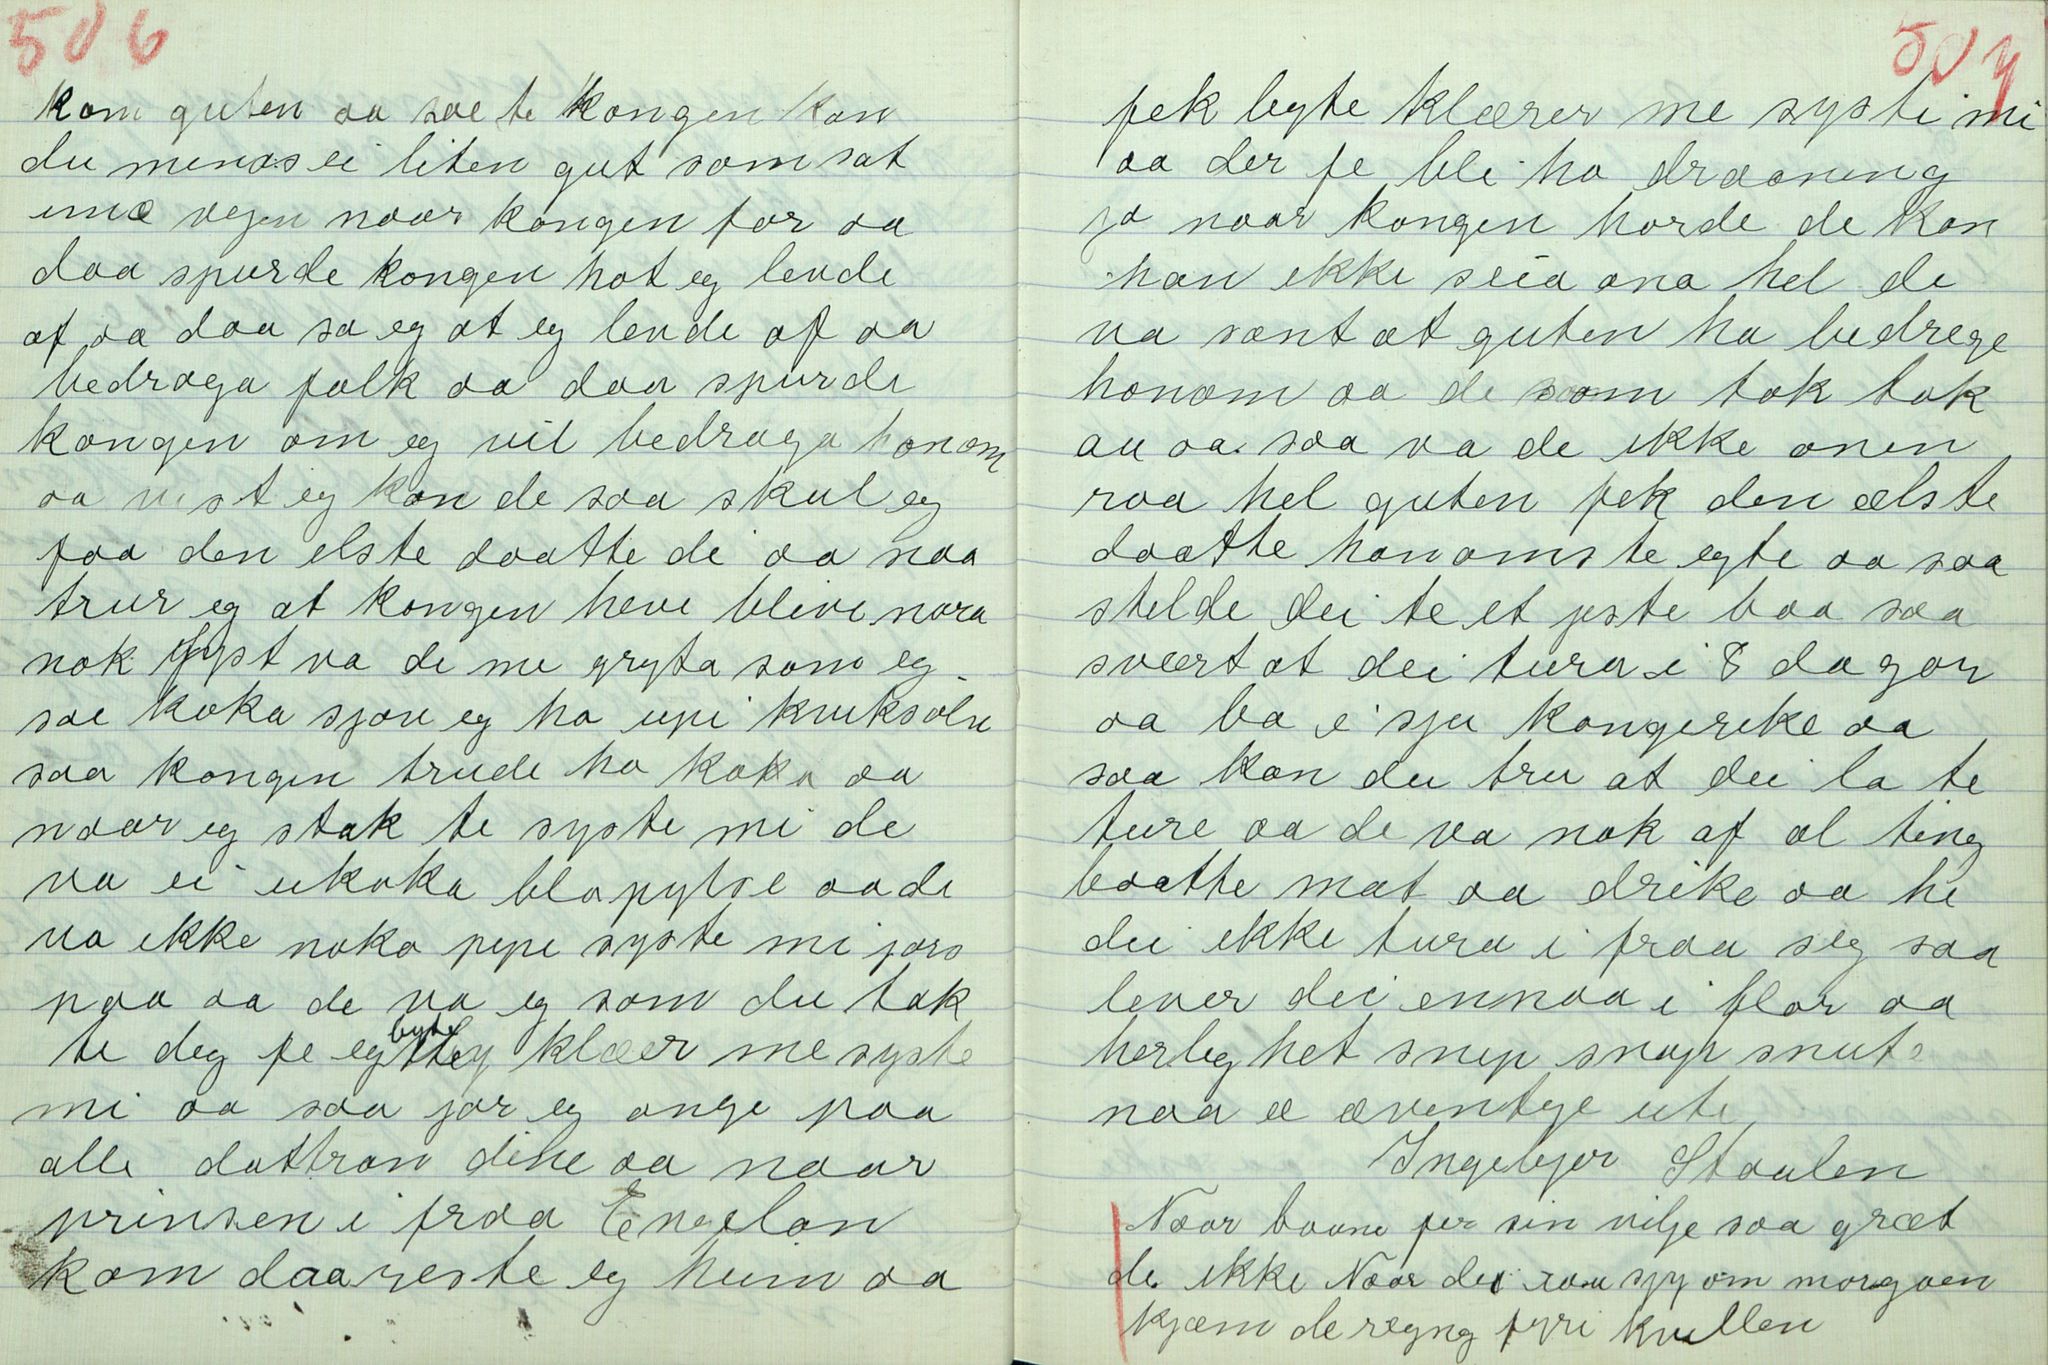 506
kom guten aa sae te kongen kan
du menas ei liten gut som sat
imæ vegen naar kongen for aa
daa spurde kongen hot eg levde
af aa daa sa eg at eg levde af aa
bedraga folk aa daa spurde
kongen om eg vil bedraga honom
aa vist eg kan de saa skul eg
faa den elste daatte di aa naa
trur eg at kongen heve blive nara
nok fyst va de me gryta som eg
sae koka sjøu eg ha upi kruksolu
saa kongen trude ho koka aa
naar eg stak te syste mi de
va ei ukoka blapylse aa de
va ikke noko pipe syste mi jors
paa aa de va eg som du tok
te deg fe eg byte klær me syste
mi aa saa jor eg ange paa
alle dattran dine aa naar
prinsen i fraa Engelan
kom daa reste eg heim aa
507
fek byte klærer me syste mi
aa der fe blei ho draaning
ja naar kongen horde de kan
han ikke seia ana hel de
va sant at guten ha bedrege
honom aa de som tok tok
au aa saa va de ikke anen
raa hel guten fek den ælste
daatte honoms te egte aa saa
stelde dei te et jste baa saa
svært at dei tura i 8 dagar
aa ba i sju kongerike aa
saa kan du tru at dei la te
ture aa de va nok af al ting
baatte mat aa drike aa he
dei ikke tura i fraa seg saa
lever dei ennaa i flor aa
herleghet snip snap snute
naa æ æventye ute
Ingebjor Staalen
Naar baane fer sin vilje saa græt
de ikke Naar dei roa sjy om morgoen
kjæm de rægng fyri kvellen